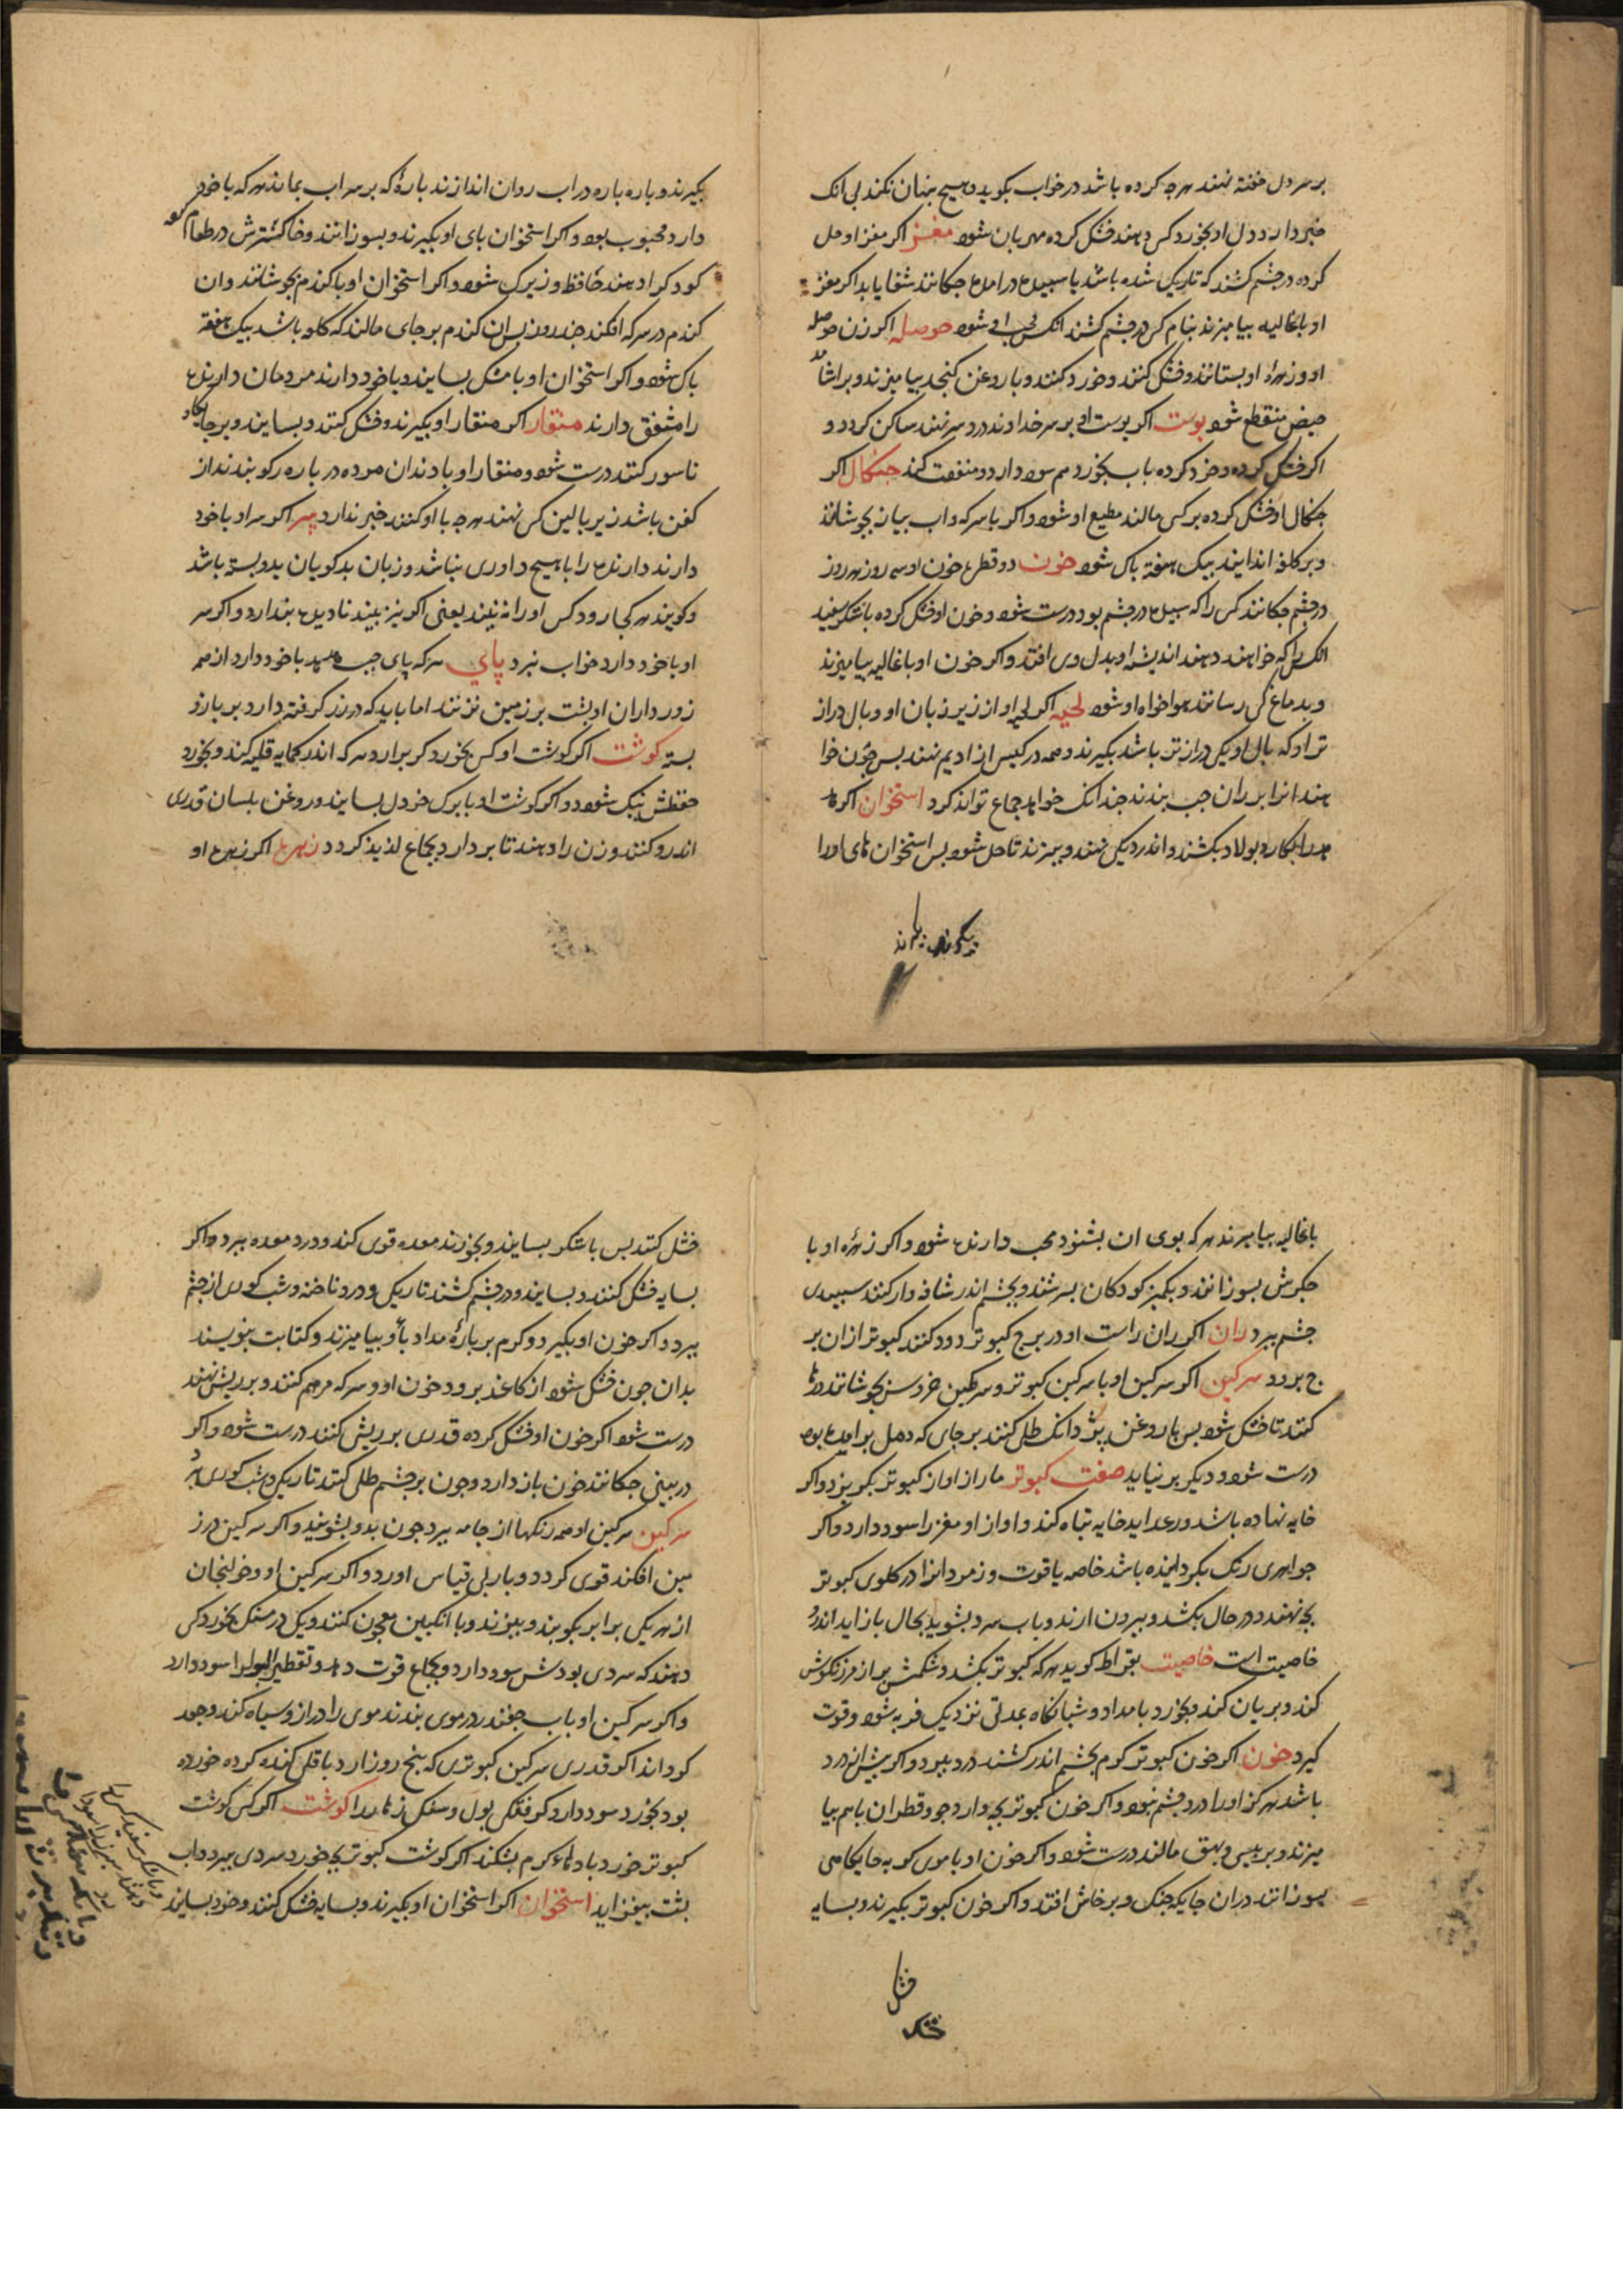 بر سر دل خفته نهند هرچ کرده باشد در خواب بکوید و هیچ بنهان نکند بی انک
خبر دارد و دل او بخورد کس دهند خشک کرده مهربان شود مغز اکر مغز او حل
کرده در چشم کشند که تاریک شده باشد یا سبیده در امده جکانند شفا یابد اکر مغز
او با غالیه بیامیزند بنام کس در چشم کشند انکس محب او شود حوصله اکر زن حوصله
او و زهرهٔ او بستانند و خشک کنند و خورد کنند و با روغن کنجد بیامیزند و بر اشامد
حیض منقطع شود بوست اکر بوست او بر سر خداوند درد سر نهند ساکن کردد و
اکر خشک کرده و خرد کرده باب بخورد هم سود دارد و منفعت کند جنکال اکر
جنکال او خشک کرده بر کس مالند مطیع او شود و اکر با سرکه و اب بیاز بجوشانند
و بر کلف اندایند بیک هفته باک شود خون دو قطره خون او سه روز هر روز
در چشم جکانند کس را که سبیده در چشم بود درست شود و خون او خشک کرده باشکر سفید
انکس را که خواهند دهند اندیشه او بدل وی افتد و اکر خون او با غالیه بیامیزند
و بدماغ کس رسانند هواخواه او شود لحیه اکر لحیه او از زیر زبان او و بال دراز
تر او که بال او یکی درازتر باشد بکیرند و همه در کیس از ادیم نهند بس جون خوا
هند انرا بر ران جب بندند جندانک خواهد جماع تواند کرد استخوان اکر
هدهد را بکارد بولاد بکشند و اندر دیک نهند و ببزند تا حل شود بس استخوان های او را
بکیرند
بکیرند و باره باره در اب روان اندازند بارهٔ که بر سر اب بماند هر که با خود
دارد محبوب بود و اکر استخوان بای او بکیرند و بسوزانند و خاکسترش در طعام
کودک را دهند حافظ و زیرک شود و اکر استخوان او با کندم بجوشانند و ان
کندم در سرکه افکند جند روز بس ان کندم بر جای مالند که کلف باشد بیک هفته
باک شود و اکر استخوان او با مشک بسایند و با خود دارند مردمان دارنده
را مشفق دارند منقار اکر منقار او بکیرند و خشک کنند و بسایند و بر جایکاه
ناسور کنند درست شود و منقار او با دندان مرده در باره رکو بندند از
کفن باشد زیر بالین کس نهند هرچ با او کنند خبر ندارد سر اکر سر او با خود
دارند دارنده را با هیچ داوری نباشد و زبان بدکویان بدو بسته باشد
و کویند هر کجا رود کس او را نه بیند یعنی اکر نیز بیند نادیده بندارد و اکر سر
او با خود دارد خواب نبرد پای هر که پای جب هدهد با خود دارد از همه
زورداران او بشت بر زمین نزنند اما باید که در زر کرفته دارد بر بازو
بسته کوشت اکر کوشت او کس بخورد کر براردو هر که اندر کمایه قلیه کند و بخورد
حفظش نیک شود و اکر کوشت او با برک خردل بسایند و روغن بلسان قدری
اندرو کنند و زن را دهند تا بردارد بجماع لذیذ کردد زهره اکر زهره او
با غالیه بیامیزند هر که بوی ان بشنود محب دارنده شود و اکر زهرهٔ او با
جکرش بسوزانند و بکمیز کودکان بسرشند و بچشم اندر شافه وار کنند سبیدی
جشم ببرد ران اکر ران راست او در برج کبوتر دود کنند کبوتر از ان بر
ج برود سرکین اکر سرکین او با سرکین کبوتر و سرکین خروس بجوشانند و رها
کنند تا خشک شود بس با روغن بنج دانک طلی کنند بر جای که دمل بر امده بود
درست شود و دیکر بر نیاید صفت کبوتر مار از اواز کبوتر بکریزد و اکر
خایه نهاده باشد و رعد اید خایه تباه کند و اواز او مغز را سود دارد و اکر
جواهری رنک بکردانیده باشد خاصه یاقوت و زمرد انرا در کلوی کبوتر
بچه نهند و در حال بکشند و بیرون ارند و باب سرد بشویند بحال باز اید اندرو
خاصیت است خاصیت بقراط کوید هر که کبوتر بکشد و شکمش بر از مرزنکوش
کند و بریان کند و بخورد بامداد و شبانکاه بمدتی نزدیک فربه شود و قوت
کیرد خون اکر خون کبوتر کرم بچشم اندر کشند درد ببرد و اکر بیش از درد
باشد هرکز او را درد چشم نبود و اکر خون کبوتر بچه و ارد جو و قطران باهم بیا
میزند و بر بیسی و بهق مالند درست شود و اکر خون او با موی کربه جایکاهی
بسوزانند در ان جایکه جنک و برخاش افتد و اکر خون کبوتر بکیرند و بسایه
خشک
خشک
خشک کنند بس باشکر بسایند و بخورند معده قوی کند و درد معده ببرد و اکر
بسایه خشک کنند و بسایند و در چشم کشند تاریکی و درد ناخنه و شب کوری از چشم
ببرد و اکر خون او بکیرد و کرم بر بارهٔ مداد باو بیامیزند و کتابت بنویسند
بدان جون خشک شود از کاغذ برود خون او و سرکه مرهم کنند و بر ریش نهند
درست شود اکر خون او خشک کرده قدری بر ریش کنند درست شود و اکر
در بینی جکانند خون باز دارد و جون بر چشم طلی کنند تاریکی و شب کوری ببرد
سرکین سرکین او همه رنکها از جامه ببرد جون بدو بشویند و اکر سرکین در ز
مین افکند قوی کردد و بار بی قیاس اورد و اکر سرکین او و خولنجان
از هر یکی برابر بکوبند و ببیزند و با انکبین معجون کنند و یک درمسنک بخورد کس
دهند که سردی بودش سود دارد و بجماع قوت دهد و تقطیر البول را سود دارد
و اکر سرکین او باب جغندر در موی بندند موی را دراز و سیاه کند و جعد
کرداند اکر قدری سرکین کبوتری که بنج روز ارد باقلی کنده کرده خورده
بود بخورد سود دارد کرفتکی بول و سنک زهار را کوشت اکر کس کوشت
کبوتر خورد بادهاء کرم بشکند اکر کوشت کبوتر بچه خورد سردی ببرد و اب
بشت بیفزاید استخوان اکر استخوان او بکیرند و بسایه خشک کنند و خرد بسایند